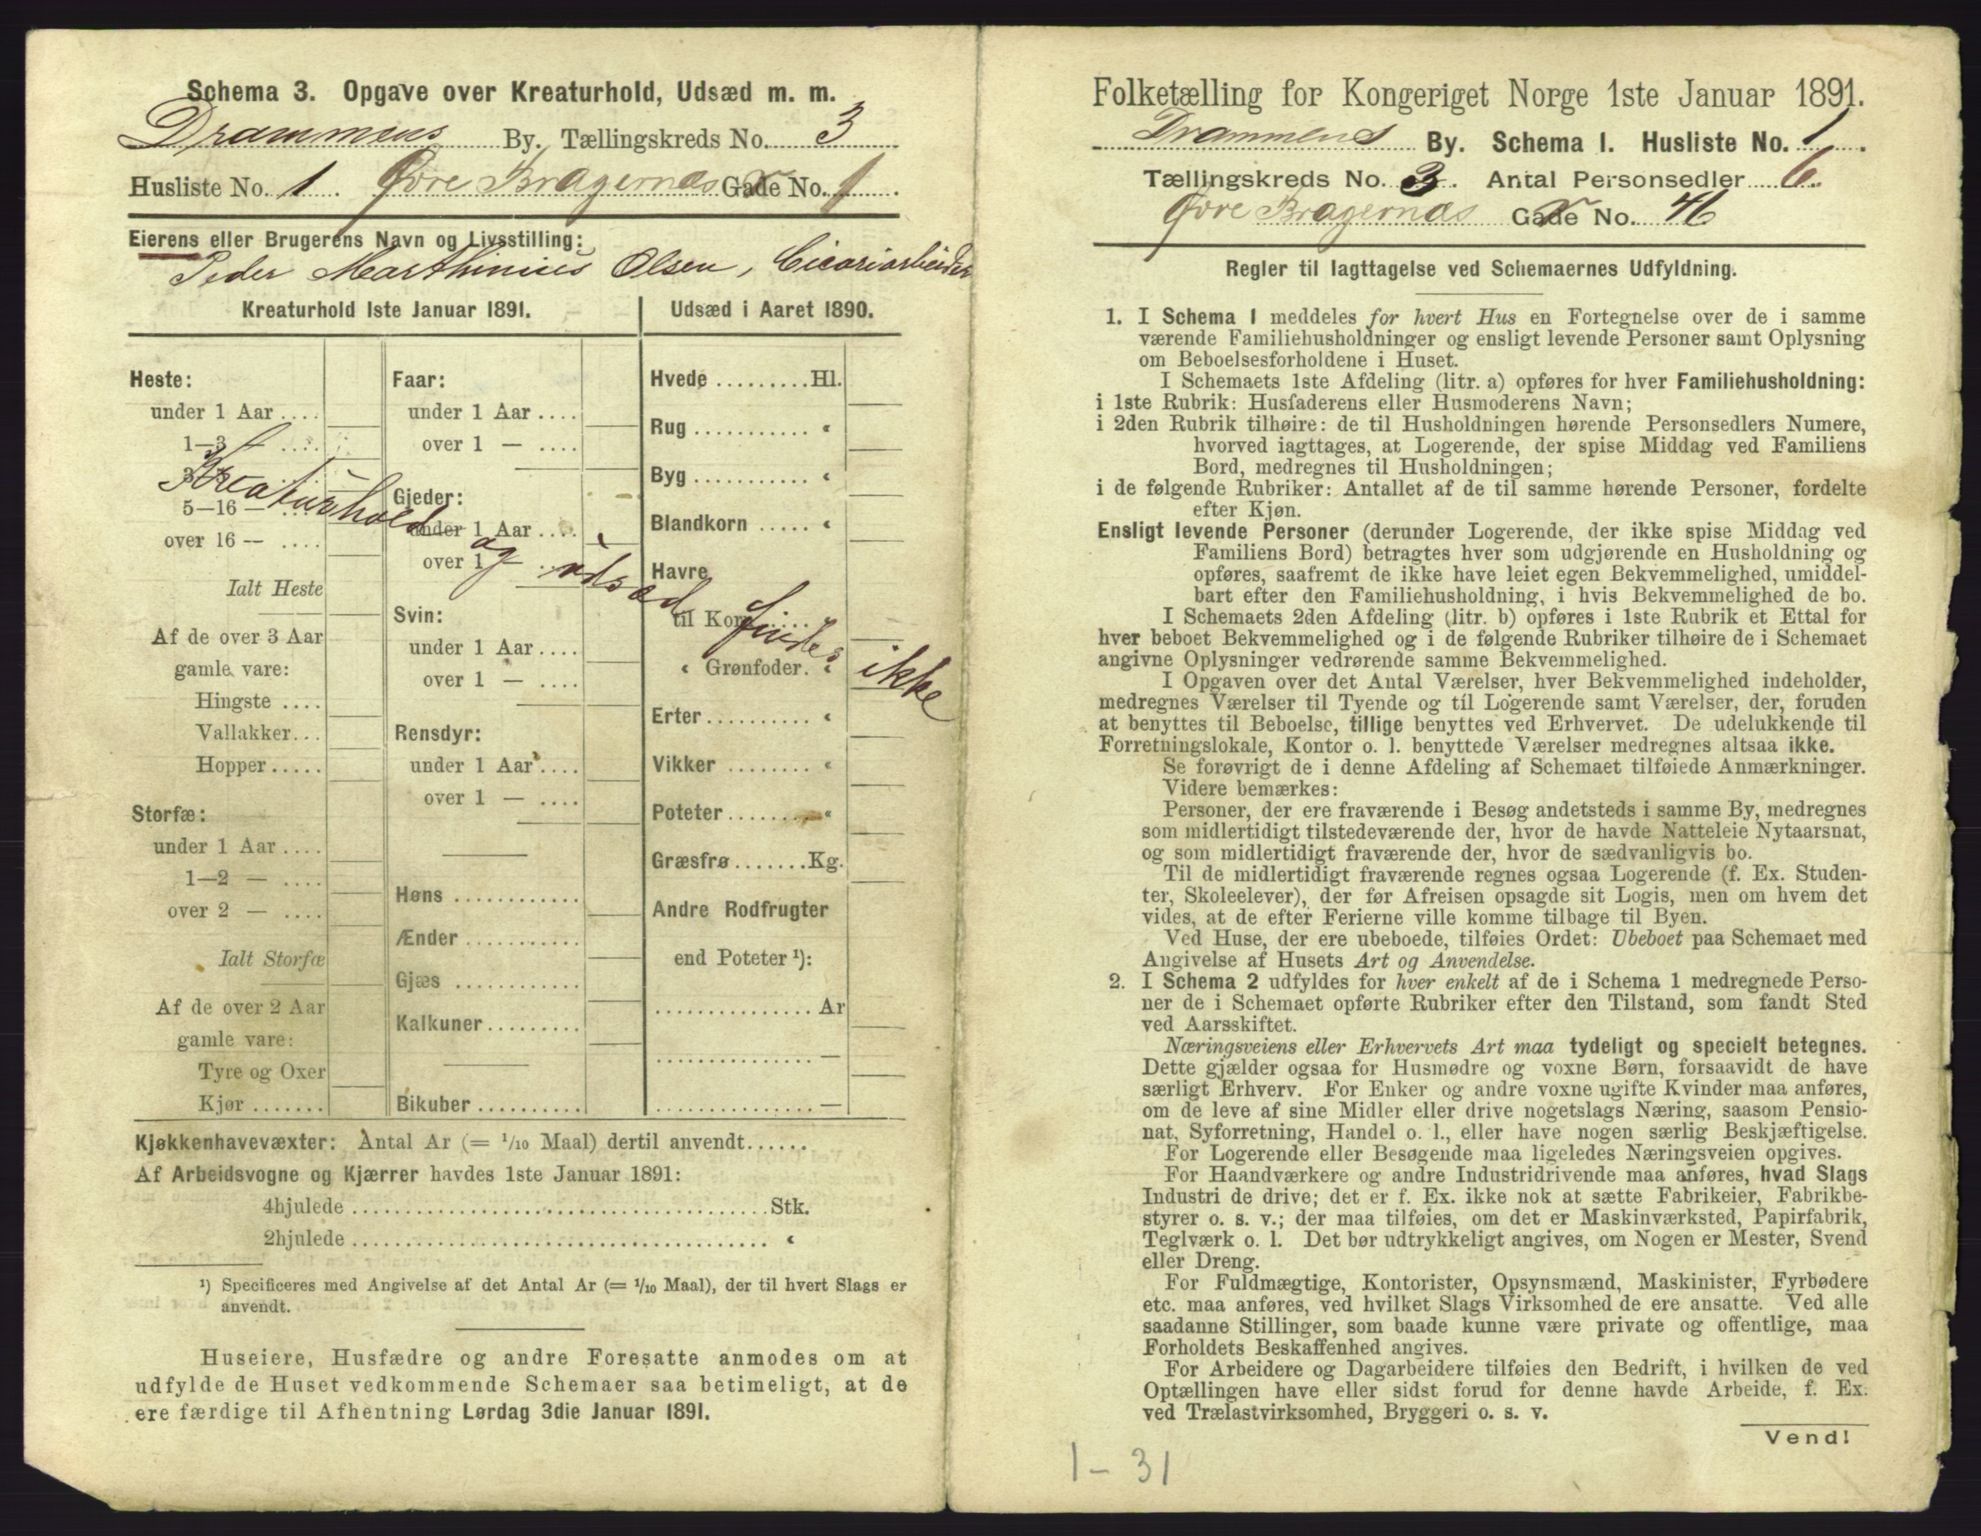 Schema 3. Opgave over Kreaturhold, Udsæd m. m.
Drammens By. Tællingskreds No. 3
Husliste No. 1. Øvre Bragernæs Gade No. 1.
Eierens eller Brugerens Navn og Livsstilling:
Peder Marthinius Olsen, Cicoriarbeider
Kreaturhold 1ste Januar 1891.
Heste:
under 1 Aar ....
1—3 — ....
3—5 — ....
5—16 — ....
over 16 — ....
Ialt Heste
Af de over 3 Aar
gamle vare:
Hingste ....
Vallakker...
Hopper.....
Storfæ:
under 1 Aar ....
1—2 — ....
over 2 — ....
Ialt Storfæ
Af de over 2 Aar
gamle vare:
Tyre og Oxer
Kjør .......
Faar:
under 1 Aar ....
over 1 — ....
Gjeder:
under 1 Aar ....
over 1 — ....
Svin:
under 1 Aar ....
over 1 — ....
Rensdyr:
under 1 Aar ....
over 1 — ....
Høns ............
Ænder ...........
Gjæs ............
Kalkuner.........
Bikuber..........
Udsæd i Aaret 1890.
Hvede .........Hl.
Rug ........... «
Byg ........... «
Blandkorn ..... «
Havre
til Korn ..... «
« Grønfoder. «
Erter.......... «
Vikker ........ «
Poteter ........ «
Græsfrø .......Kg.
Andre Rodfrugter
end Poteter ¹):
............... Ar
............... —
............... —
Kreaturhold og udsæd findes ikke
Kjøkkenhavevæxter: Antal Ar (= 1/10 Maal) dertil anvendt......
Af Arbeidsvogne og Kjærrer havdes 1ste Januar 1891:
4hjulede .......................................Stk.
2hjulede ....................................... «
¹) Specificeres med Angivelse af det Antal Ar (= 1/10 Maal), der til hvert Slags er
anvendt.
Huseiere, Husfædre og andre Foresatte anmodes om at
udfylde de Huset vedkommende Schemaer saa betimeligt, at de
ere færdige til Afhentning Lørdag 3die Januar 1891.
Folketælling for Kongeriget Norge 1ste Januar 1891.
Drammens By. Schema I. Husliste No. 1.
Tællingskreds No. 3. Antal Personsedler 6.
Øvre Bragernæs Gade No. 46
Regler til Iagttagelse ved Schemaernes Udfyldning.
1. I Schema 1 meddeles for hvert Hus en Fortegnelse over de i samme
værende Familiehusholdninger og ensligt levende Personer samt Oplysning
om Beboelsesforholdene i Huset.
I Schemaets 1ste Afdeling (litr. a) opføres for hver Familiehusholdning:
i 1ste Rubrik: Husfaderens eller Husmoderens Navn;
i 2den Rubrik tilhøire: de til Husholdningen hørende Personsedlers Numere,
hvorved iagttages, at Logerende, der spise Middag ved Familiens
Bord, medregnes til Husholdningen;
i de følgende Rubriker: Antallet af de til samme hørende Personer, fordelte
efter Kjøn.
Ensligt levende Personer (derunder Logerende, der ikke spise Middag ved
Familiens Bord) betragtes hver som udgjørende en Husholdning og
opføres, saafremt de ikke have leiet egen Bekvemmelighed, umiddel-
bart efter den Familiehusholdning, i hvis Bekvemmelighed de bo.
I Schemaets 2den Afdeling (litr. b) opføres i 1ste Rubrik et Ettal for
hver beboet Bekvemmelighed og i de følgende Rubriker tilhøire de i Schemaet
angivne Oplysninger vedrørende samme Bekvemmelighed.
I Opgaven over det Antal Værelser, hver Bekvemmelighed indeholder,
medregnes Værelser til Tyende og til Logerende samt Værelser, der, foruden
at benyttes til Beboelse, tillige benyttes ved Erhvervet. De udelukkende til
Forretningslokale, Kontor o. l. benyttede Værelser medregnes altsaa ikke.
Se forøvrigt de i denne Afdeling af Schemaet tilføiede Anmærkninger.
Videre bemærkes:
Personer, der ere fraværende i Besøg andetsteds i samme By, medregnes
som midlertidigt tilstedeværende der, hvor de havde Natteleie Nytaarsnat,
og som midlertidigt fraværende der, hvor de sædvanligvis bo.
Til de midlertidigt fraværende regnes ogsaa Logerende (f. Ex. Studen-
ter, Skoleelever), der før Afreisen opsagde sit Logis, men om hvem det
vides, at de efter Ferierne ville komme tilbage til Byen.
Ved Huse, der ere ubeboede, tilføies Ordet: Ubeboet paa Schemaet med
Angivelse af Husets Art og Anvendelse.
2. I Schema 2 udfyldes for hver enkelt af de i Schema 1 medregnede Perso-
ner de i Schemaet opførte Rubriker efter den Tilstand, som fandt Sted
ved Aarsskiftet.
Næringsveiens eller Erhvervets Art maa tydeligt og specielt betegnes.
Dette gjælder ogsaa for Husmødre og voxne Børn, forsaavidt de have
særligt Erhverv. For Enker og andre voxne ugifte Kvinder maa anføres,
om de leve af sine Midler eller drive nogetslags Næring, saasom Pensio-
nat, Syforretning, Handel o. l., eller have nogen særlig Beskjæftigelse.
For Logerende eller Besøgende maa ligeledes Næringsveien opgives.
For Haandværkere og andre Industridrivende maa anføres, hvad Slags
Industri de drive; det er f. Ex. ikke nok at sætte Fabrikeier, Fabrikbe-
styrer o. s. v.; der maa tilføies, om det er Maskinværksted, Papirfabrik,
Teglværk o. l. Det bør udtrykkeligt angives, om Nogen er Mester, Svend
eller Dreng.
For Fuldmægtige, Kontorister, Opsynsmænd, Maskinister, Fyrbødere
etc. maa anføres, ved hvilket Slags Virksomhed de ere ansatte. Ved alle
saadanne Stillinger, som baade kunne være private og offentlige, maa
Forholdets Beskaffenhed angives.
For Arbeidere og Dagarbeidere tilføies den Bedrift, i hvilken de ved
Optællingen have eller sidst forud for denne havde Arbeide, f. Ex.
ved Trælastvirksomhed, Bryggeri o. s. v.
Vend!
1-31